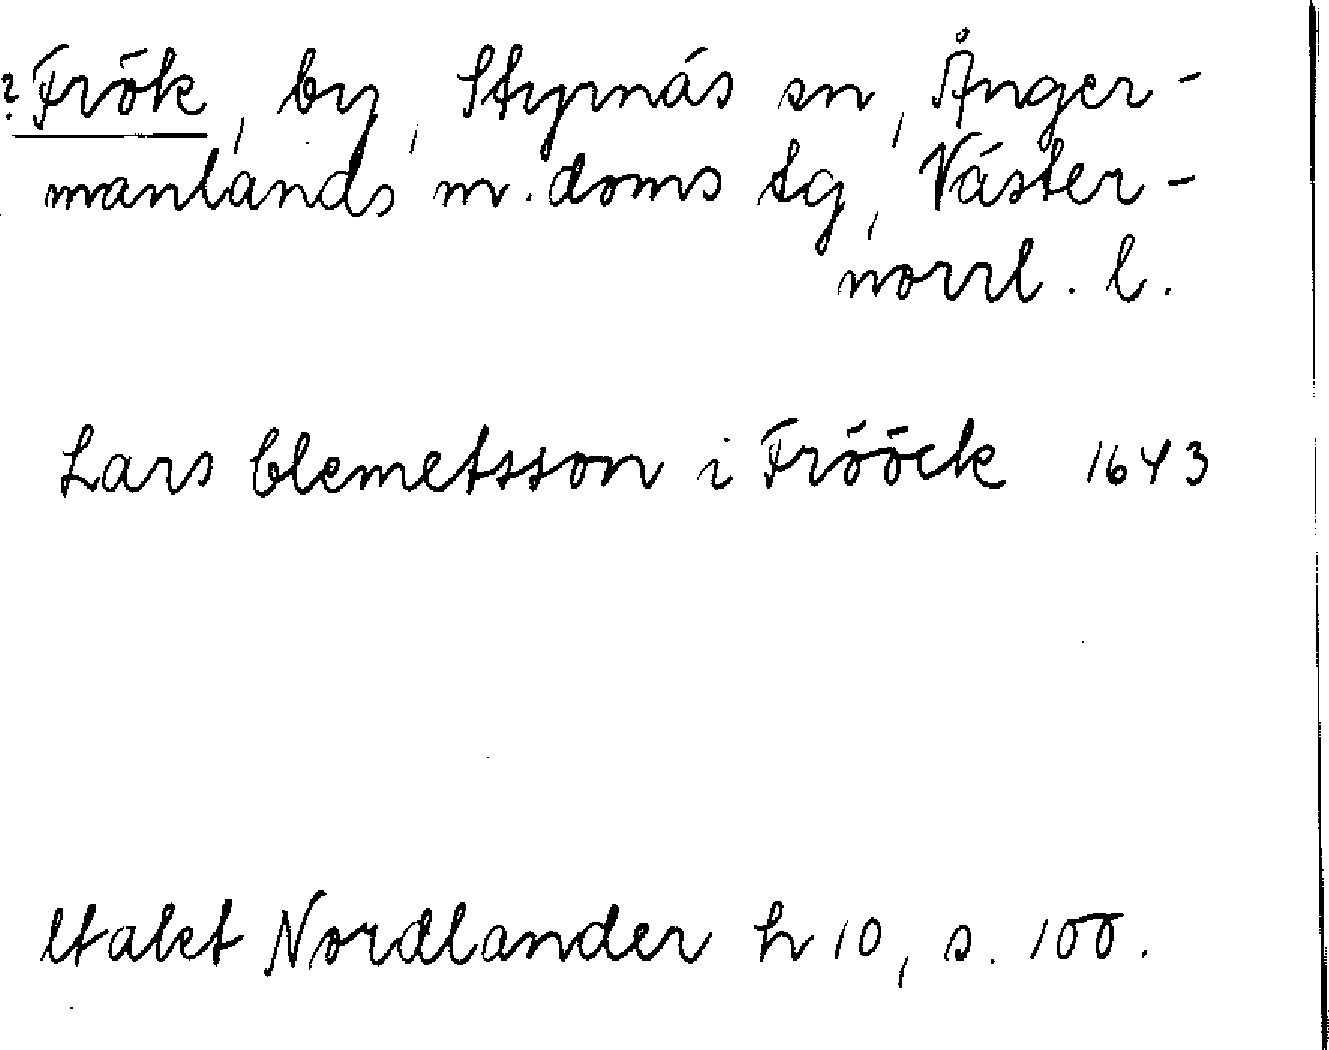 ? Frök, by, Styrnäs sn, Ånger-
manlands m. doms tg, Väster-
norrl. l.
Lars Clemetsson i Frööck 1643
Utalet Nordlander h 10, s. 100.